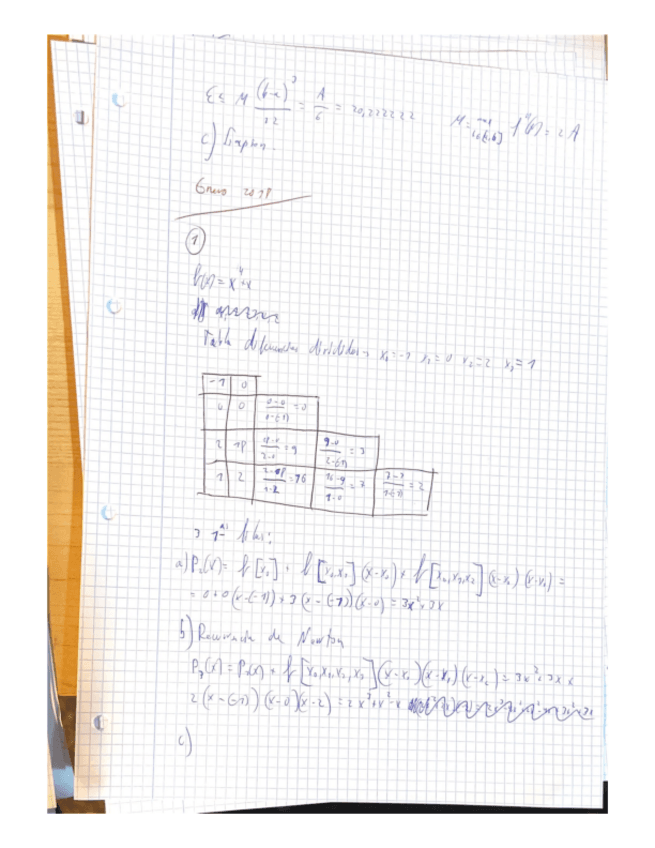 ε ≤ M (b-a)³ / 12 = A / 6 = 20,222222 M = max f''(x) = 2A
c) Simpson.
Enero 2018
1
f(x) = x⁴ + x
Tabla diferencias divididas x₀=-1 x₁=0 x₂=2 x₃=1
-1 0
0 0 0-0 / 0-(-1) = 0
2 18 18-0 / 2-0 = 9 9-0 / 2-(-1) = 3
1 2 2-18 / 1-2 = 16 16-9 / 1-0 = 7 7-3 / 1-(-1) = 2
3 1ªs filas:
a) P₂(x) = f[x₀] + f[x₀,x₁](x-x₀) + f[x₀,x₁,x₂](x-x₀)(x-x₁) =
= 0+0(x-(-1)) + 3(x-(-1))(x-0) = 3x²+3x
b) Recurrencia de Newton
P₃(x) = P₂(x) + f[x₀,x₁,x₂,x₃](x-x₀)(x-x₁)(x-x₂) = 3x²+3x+
2(x-(-1))(x-0)(x-2) = 2x³+x²-x
c)